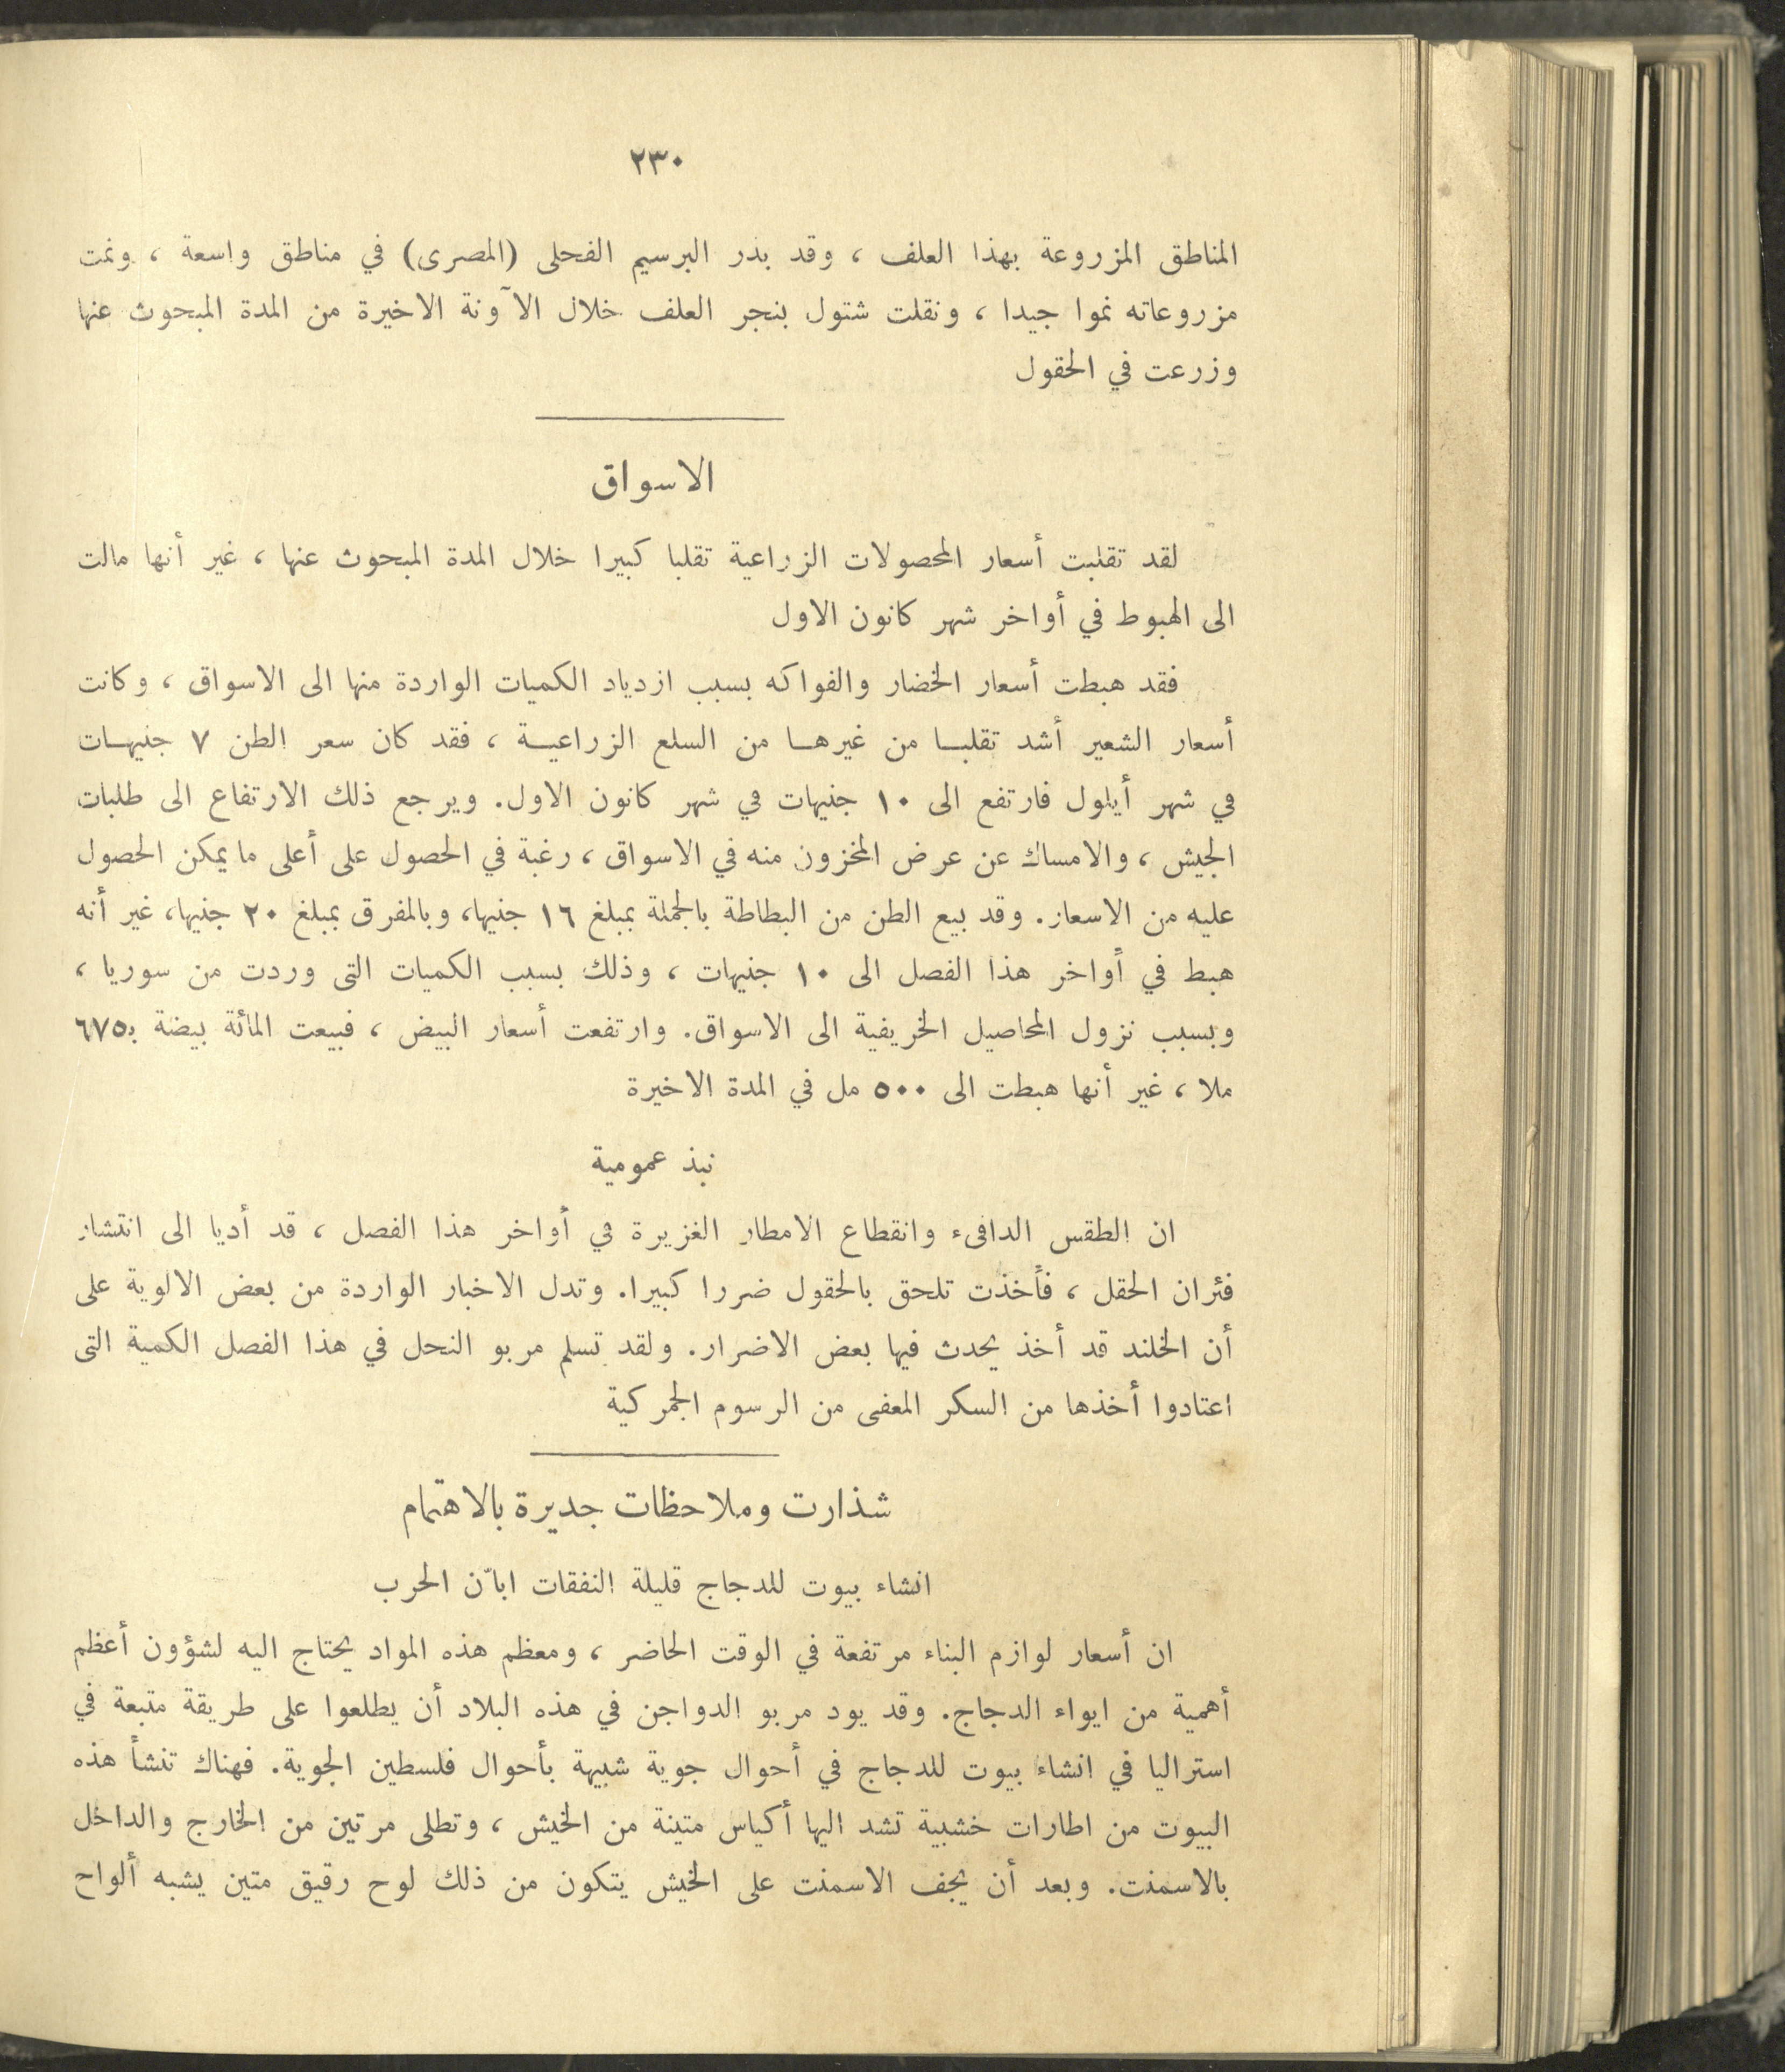 ٢٣٠
المناطق المزروعة بهذا العلف ، وقد بذر البرسيم الفحلى (المصرى) في مناطق واسعة ، ونمت
مزروعاته نموا جيدا ، ونقلت شتول بنجر العلف خلال الآونة الاخيرة من المدة المبحوث عنها
وزرعت في الحقول
الاسواق
لقد تقلبت أسعار المحصولات الزراعية تقلبا كبيرا خلال المدة المبحوث عنها ، غير أنها مالت
الى الهبوط في أواخر شهر كانون الاول
فقد هبطت أسعار الخضار والفواكه بسبب ازدياد الكميات الواردة منها الى الاسواق ، وكانت
أسعار الشعير أشد تقلبا من غيرها من السلع الزراعية ، فقد كان سعر الطن ٧ جنيهات
في شهر أيلول فارتفع الى ١٠ جنيهات في شهر كانون الاول. ويرجع ذلك الارتفاع الى طلبات
الجيش ، والامساك عن عرض المخزون منه في الاسواق ، رغبة في الحصول على أعلى ما يمكن الحصول
عليه من الاسعار. وقد بيع الطن من البطاطة بالجملة بمبلغ ١٦ جنيها، وبالمفرق بمبلغ ٢٠ جنيها، غير أنه
هبط في أواخر هذا الفصل الى ١٠ جنيهات ، وذلك بسبب الكميات التى وردت من سوريا ،
وبسبب نزول المحاصيل الخريفية الى الاسواق. وارتفعت أسعار البيض ، فبيعت المائة بيضة بـ٦٧٥
ملا ، غير أنها هبطت الى ٥٠٠ مل في المدة الاخيرة
نبذ عمومية
ان الطقس الدافىء وانقطاع الامطار الغزيرة في أواخر هذا الفصل ، قد أديا الى انتشار
فئران الحقل ، فأخذت تلحق بالحقول ضررا كبيرا. وتدل الاخبار الواردة من بعض الالوية على
أن الخلند قد أخذ يحدث فيها بعض الاضرار. ولقد تسلم مربو النحل في هذا الفصل الكمية التى
اعتادوا أخذها من السكر المعفى من الرسوم الجمركية
شذارت وملاحظات جديرة بالاهتمام
انشاء بيوت للدجاج قليلة النفقات ابّان الحرب
ان أسعار لوازم البناء مرتفعة في الوقت الحاضر ، ومعظم هذه المواد يحتاج اليه لشؤون أعظم
أهمية من ايواء الدجاج. وقد يود مربو الدواجن في هذه البلاد أن يطلعوا على طريقة متبعة في
استراليا في انشاء بيوت للدجاج في أحوال جوية شبيهة بأحوال فلسطين الجوية. فهناك تنشأ هذه
البيوت من اطارات خشبية تشد اليها أكياس متينة من الخيش ، وتطلى مرتين من الخارج والداخل
بالاسمنت. وبعد أن يجف الاسمنت على الخيش يتكون من ذلك لوح رقيق متين يشبه ألواح